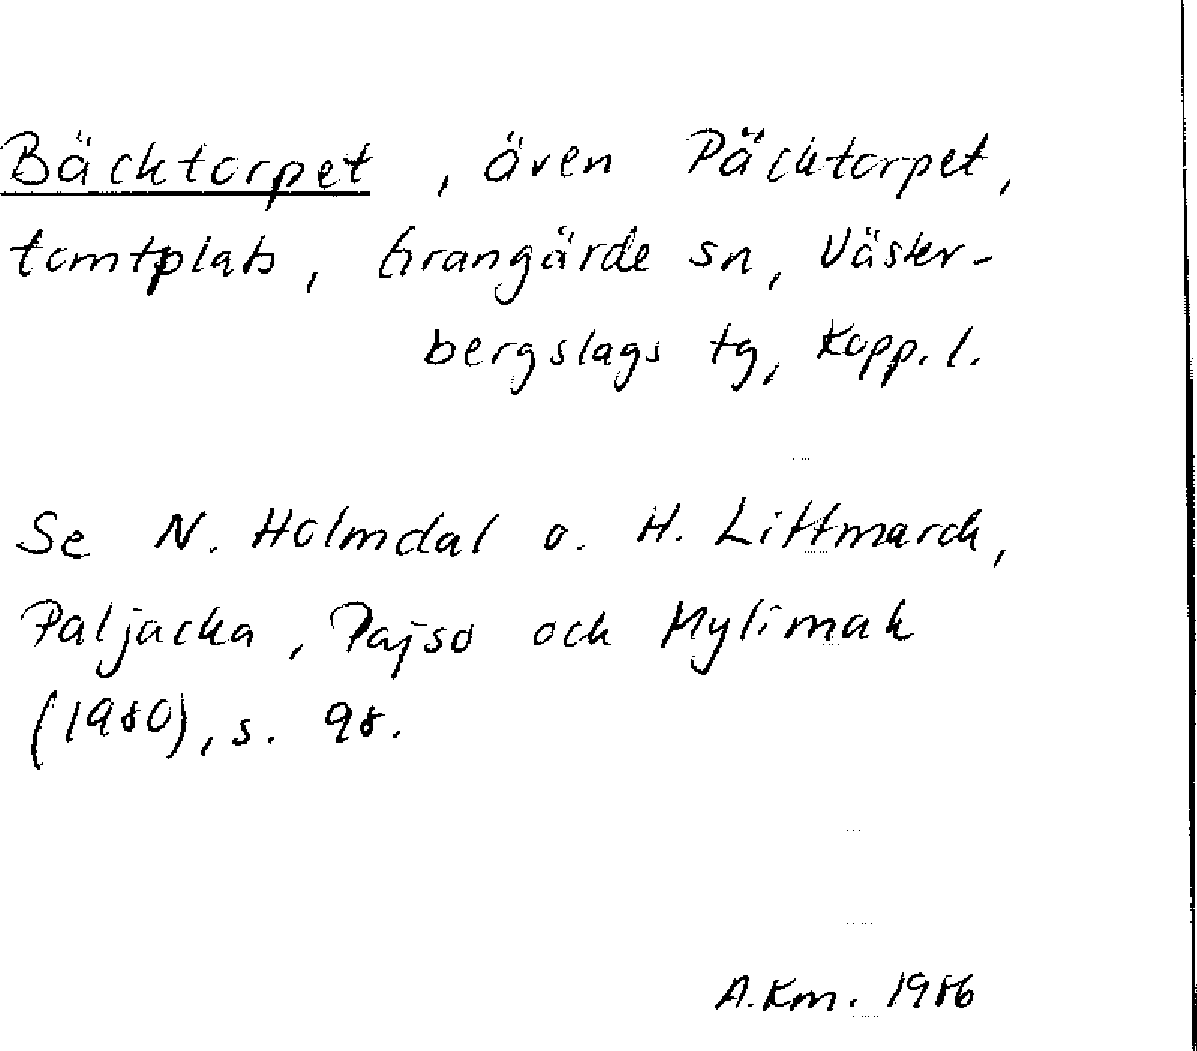 Bäcktorpet, även Päcktorpet,
tomtplats, Grangärde sn, Väster-
bergslags tg, Kopp. l.
Se N. Holmdal o. H. Littmarck,
Paljacka, Pajso och Mylimak
(1980), s. 98.
A.Km. 1986